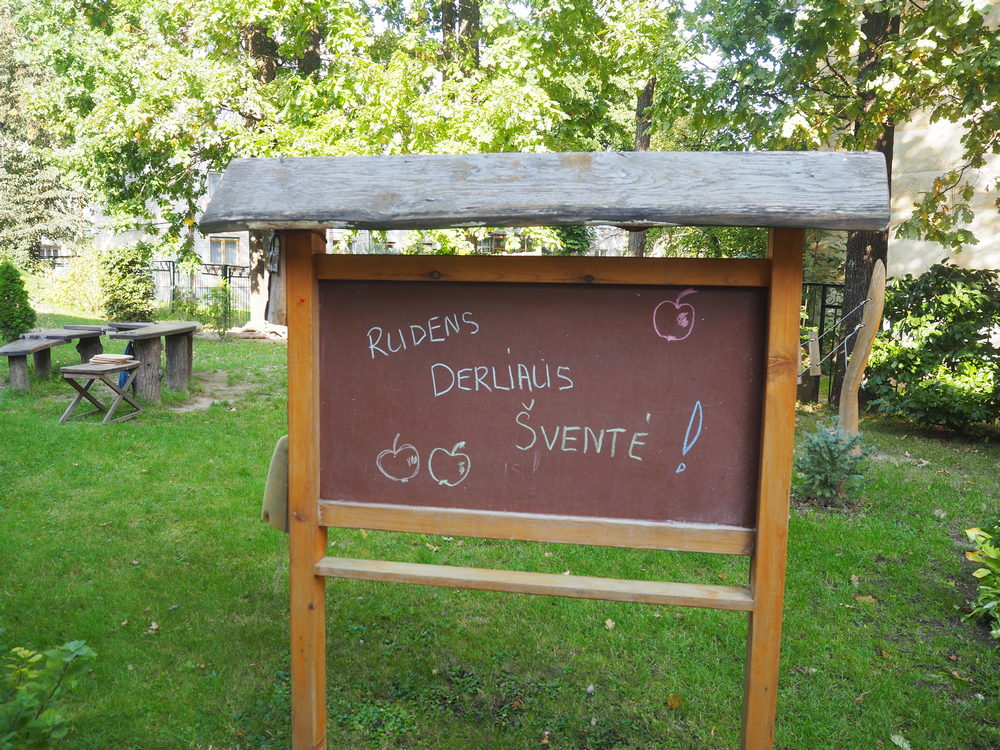 RUDENS
DERLIAUS
ŠVENTĖ!